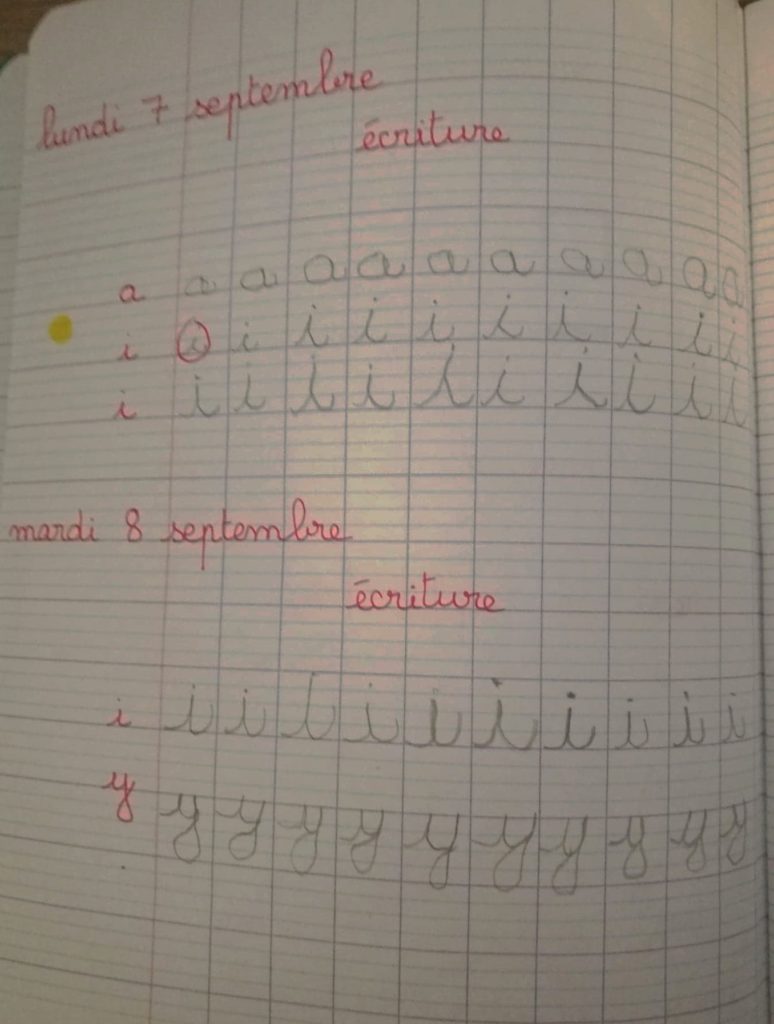 lundi 7 septembre
écriture
a a a a a a a a a a a
i i i i i i i i i i i
i i i i i i i i i i i
mardi 8 septembre
écriture
i i i i i i i i i i i
y y y y y y y y y y y